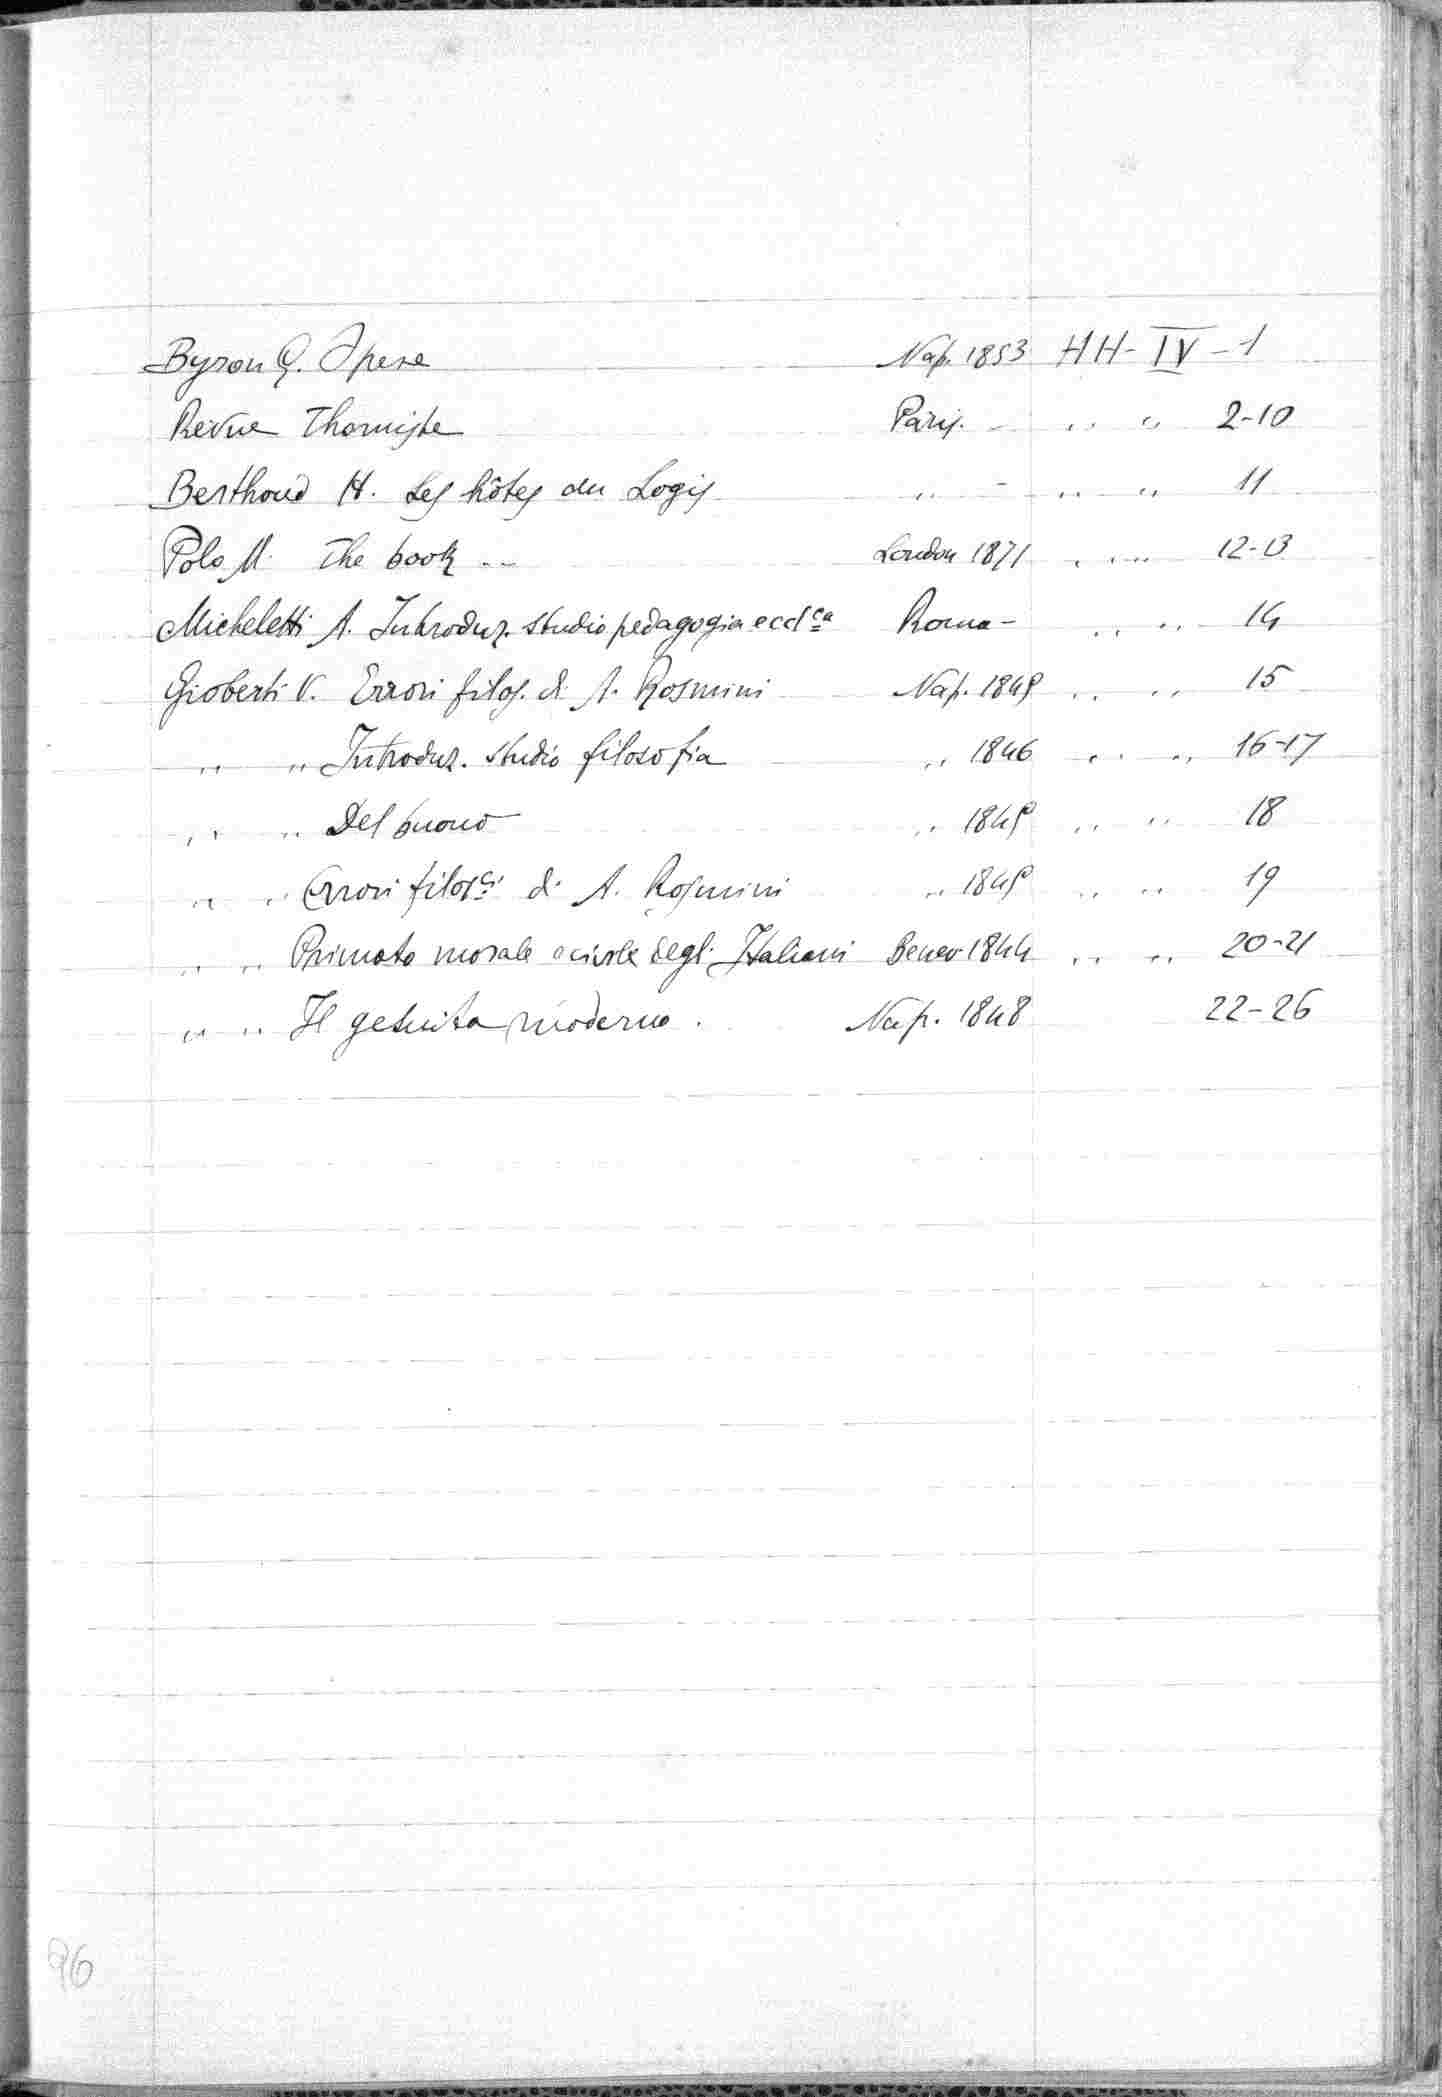 Byron G. Opere Nap. 1853 HH - IV - 1
Revue Thomiste Paris. - " " 2-10
Berthoud H. Les hôtes du Logis " - " " 11
Polo M. The book -- London 1871 " " 12-13
Micheletti A. Introduz. studio pedagogia eccl.ca Roma - " " 14
Gioberti V. Errori filos. di A. Rosmini Nap. 1845 " " 15
" " Introduz. studio filosofia " 1846 " " 16-17
" " Del buono " 1845 " " 18
" " Errori filos.ci di A. Rosmini " 1845 " " 19
" " Primato morale e civile degli Italiani Benev 1844 " " 20-21
" " Il gesuita moderno. Nap. 1848 22-26
96